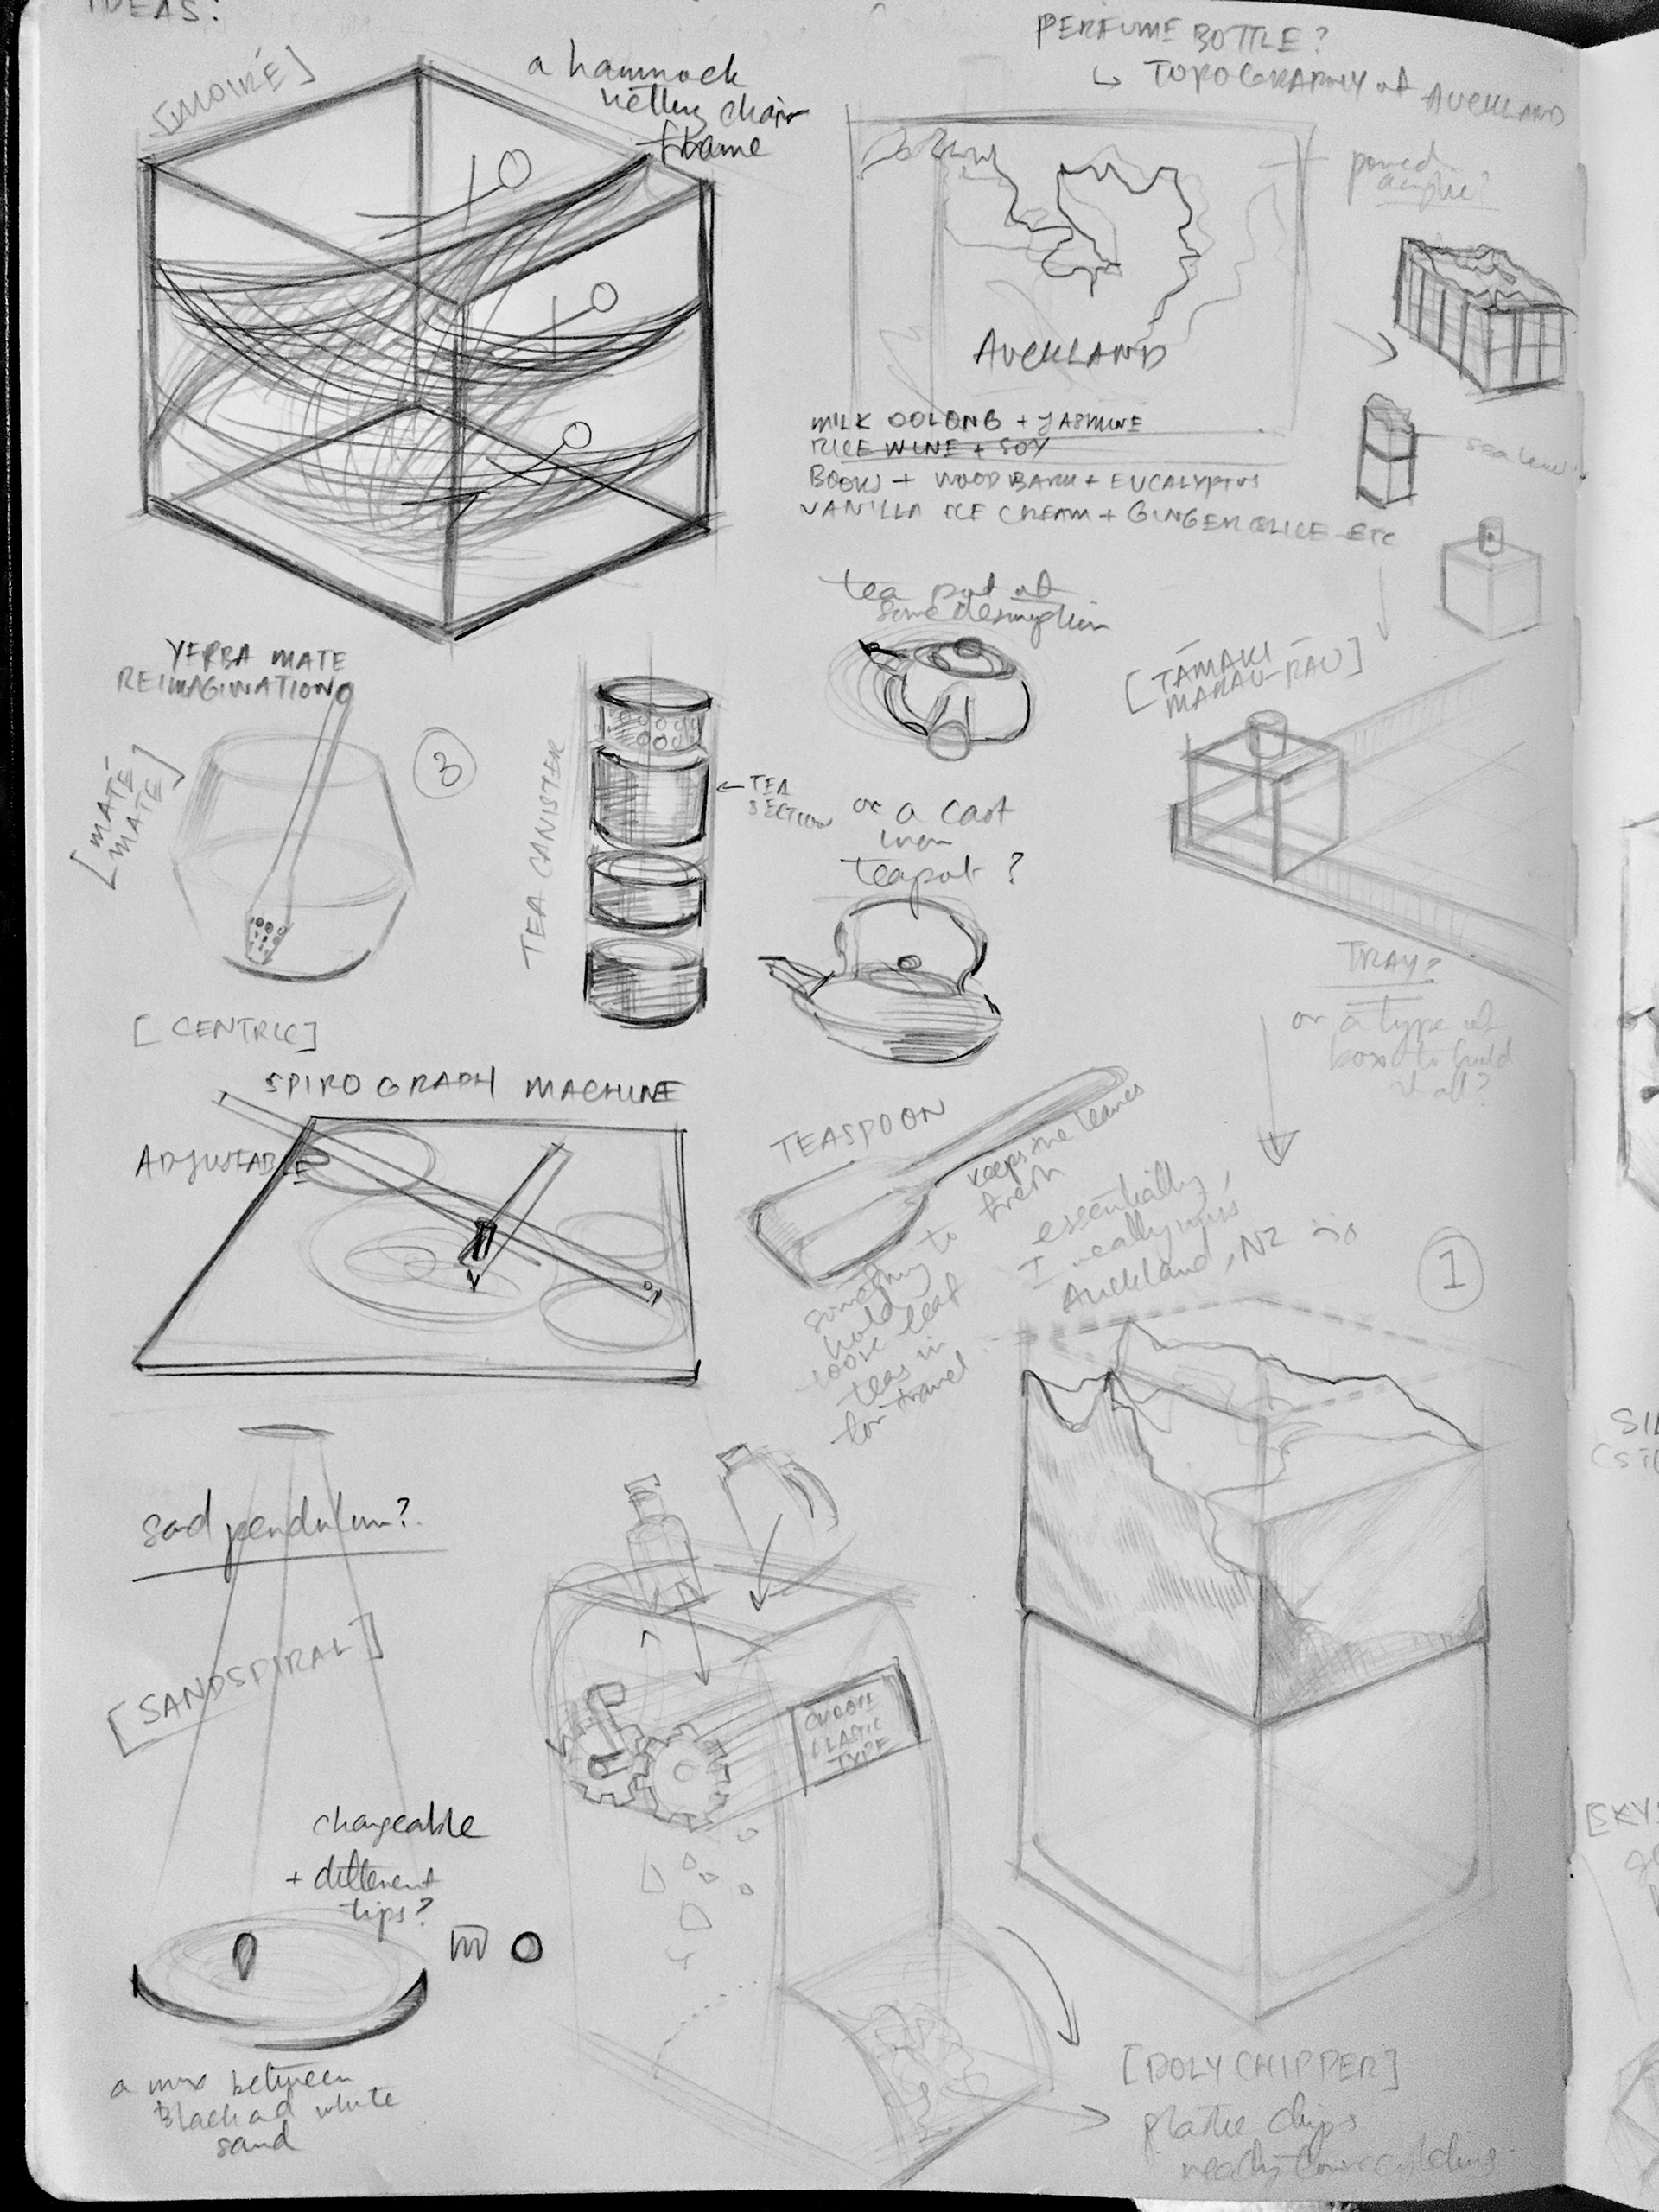 IDEAS:
[MOIRÉ]
a hammock
netting chair
frame
PERFUME BOTTLE?
↳ TOPOGRAPHY of AUCKLAND
poured
acrylic?
AUCKLAND
MILK OOLONG + JASMINE
RICE WINE + SOY
BOOKS + WOOD BARK + EUCALYPTUS
VANILLA ICE CREAM + GINGER SLICE ETC
sea level
tea pot of
some description
[TĀMAKI
MAKAU-RAU]
YERBA MATE
REIMAGINATION
[MATÉ
MATE]
3
TEA CANISTER
← TEA
SECTION
or a cast
iron
teapot?
TRAY?
or a type of
box to hold
it all?
[CENTRIC]
SPIROGRAPH MACHINE
ADJUSTABLE
TEASPOON
keeps the leaves
fresh
something to
hold
loose leaf
teas in
for travel
essentially,
I really miss
Auckland, NZ
1
sad pendulum?
[SANDSPIRAL]
changeable
+ different
tips?
a mix between
black and white
sand
CHOOSE
PLASTIC
TYPE
[POLYCHIPPER]
plastic chips
ready to
SIL
[SKY